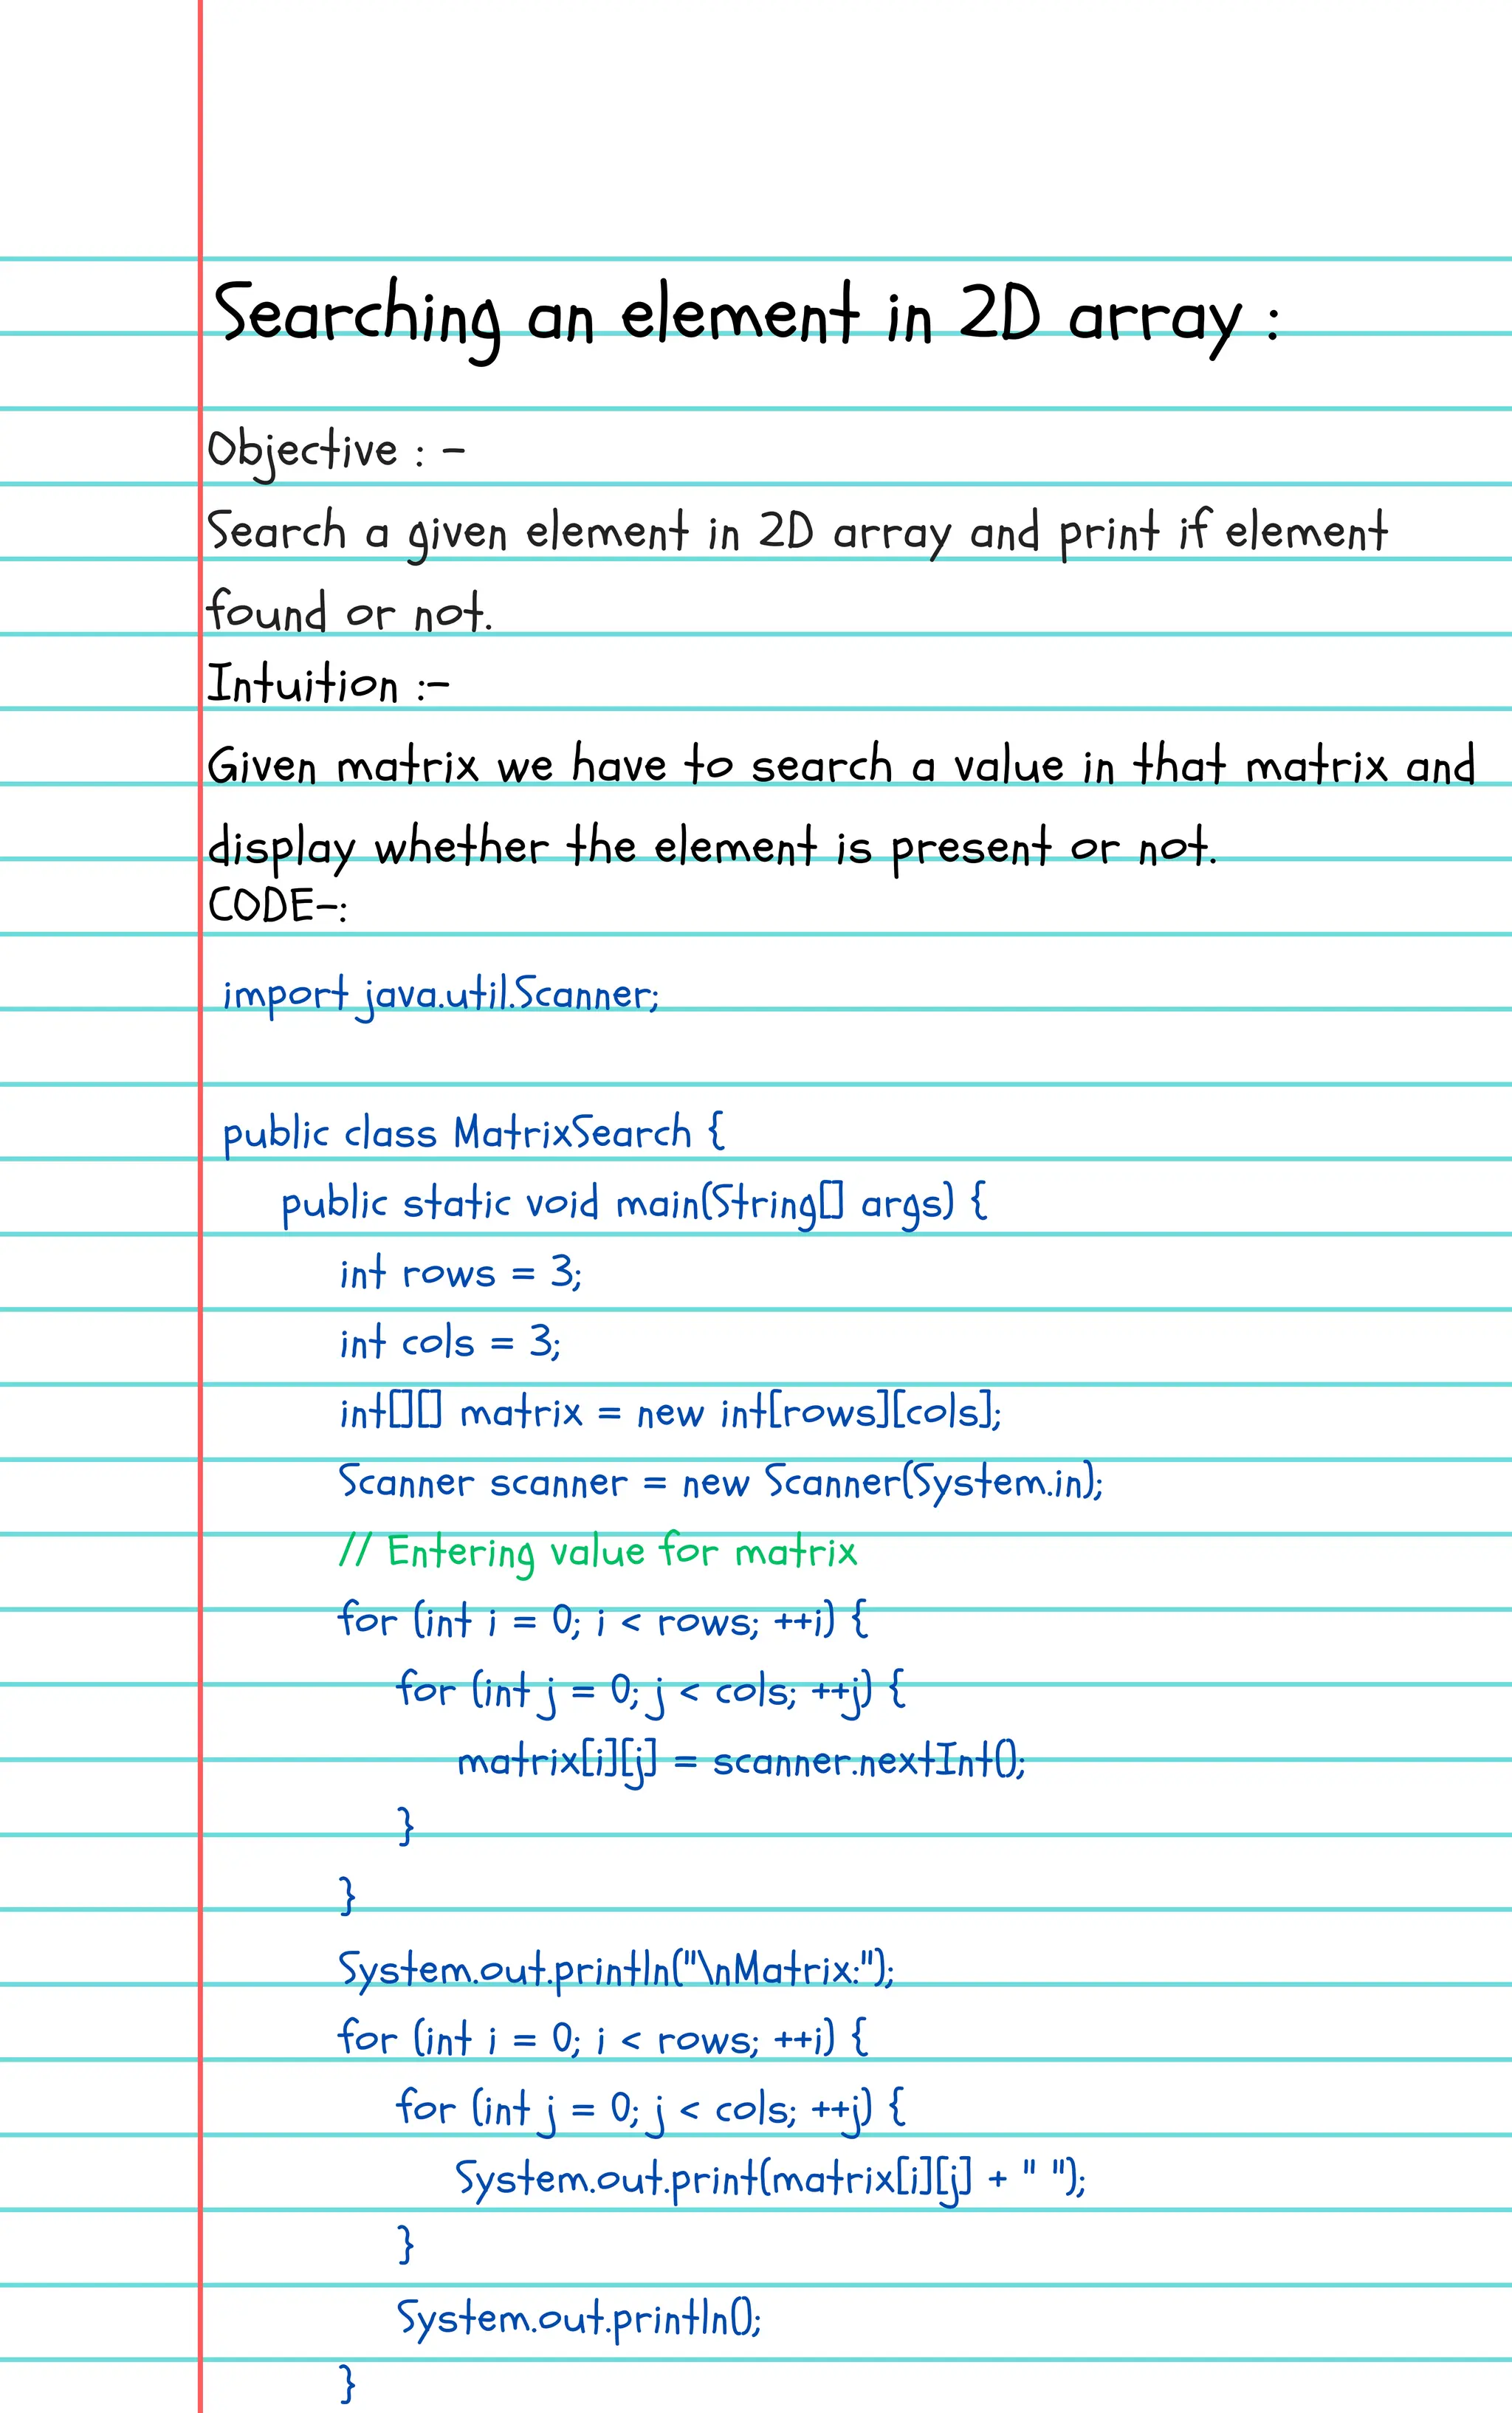 Searching an element in 2D array :
Objective : -
Search a given element in 2D array and print if element
found or not.
Intuition :-
Given matrix we have to search a value in that matrix and
display whether the element is present or not.
CODE-:
import java.util.Scanner;
public class MatrixSearch {
public static void main(String[] args) {
int rows = 3;
int cols = 3;
int[][] matrix = new int[rows][cols];
Scanner scanner = new Scanner(System.in);
// Entering value for matrix
for (int i = 0; i < rows; ++i) {
for (int j = 0; j < cols; ++j) {
matrix[i][j] = scanner.nextInt();
}
}
System.out.println("\nMatrix:");
for (int i = 0; i < rows; ++i) {
for (int j = 0; j < cols; ++j) {
System.out.print(matrix[i][j] + " ");
}
System.out.println();
}